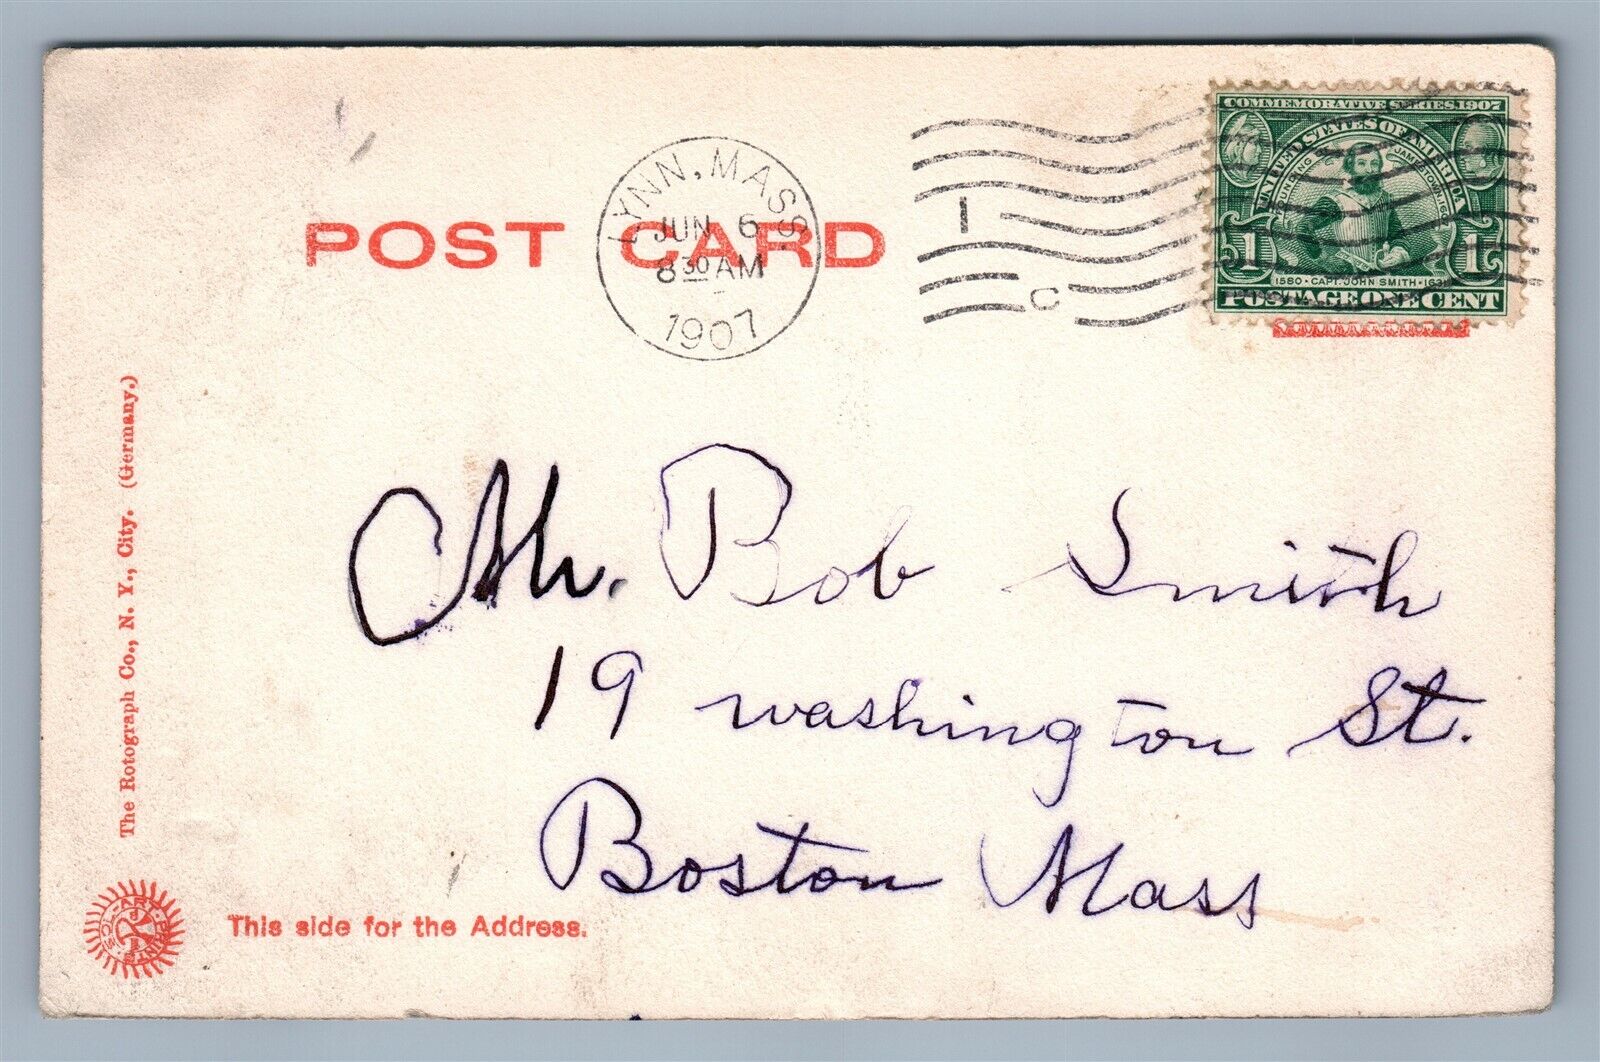 COMMEMORATIVE SERIES 1907
UNITED STATES OF AMERICA
FOUNDING OF JAMESTOWN
1 1
1580 · CAPT. JOHN SMITH · 1631
POSTAGE ONE CENT
LYNN, MASS.
JUN 6
8 30 AM
1907
I
C
POST CARD
Mr. Bob Smith
19 Washington St.
Boston Mass
The Rotograph Co., N. Y., City. (Germany.)
This side for the Address.